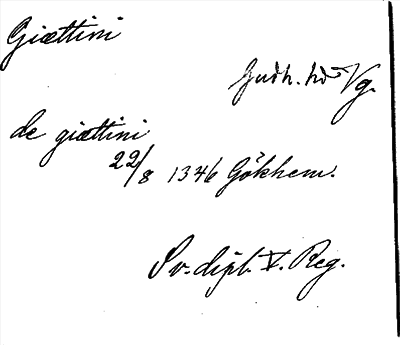 Giættini
Gudh. hd Vg.
de giættini
22/8 1346 Gökhem.
Sv. dipl. V. Reg.